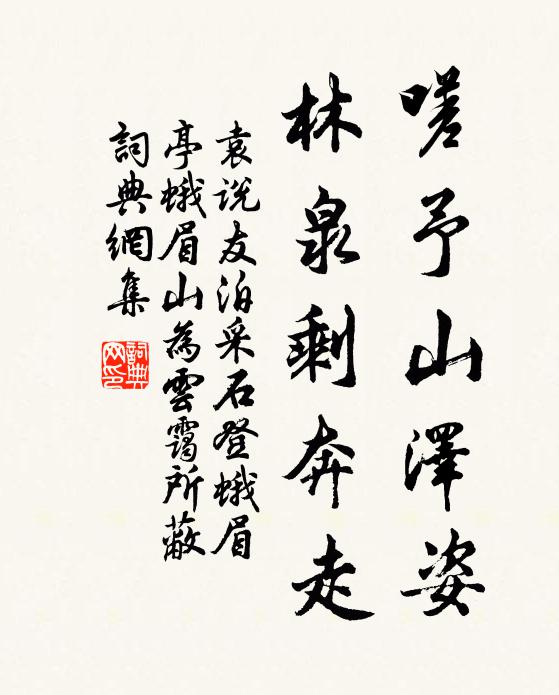 嗟予山澤姿
林泉剩奔走
袁説友泊采石登蛾眉
亭蛾眉山為雲靄所蔽
詞典網集
詞典网印